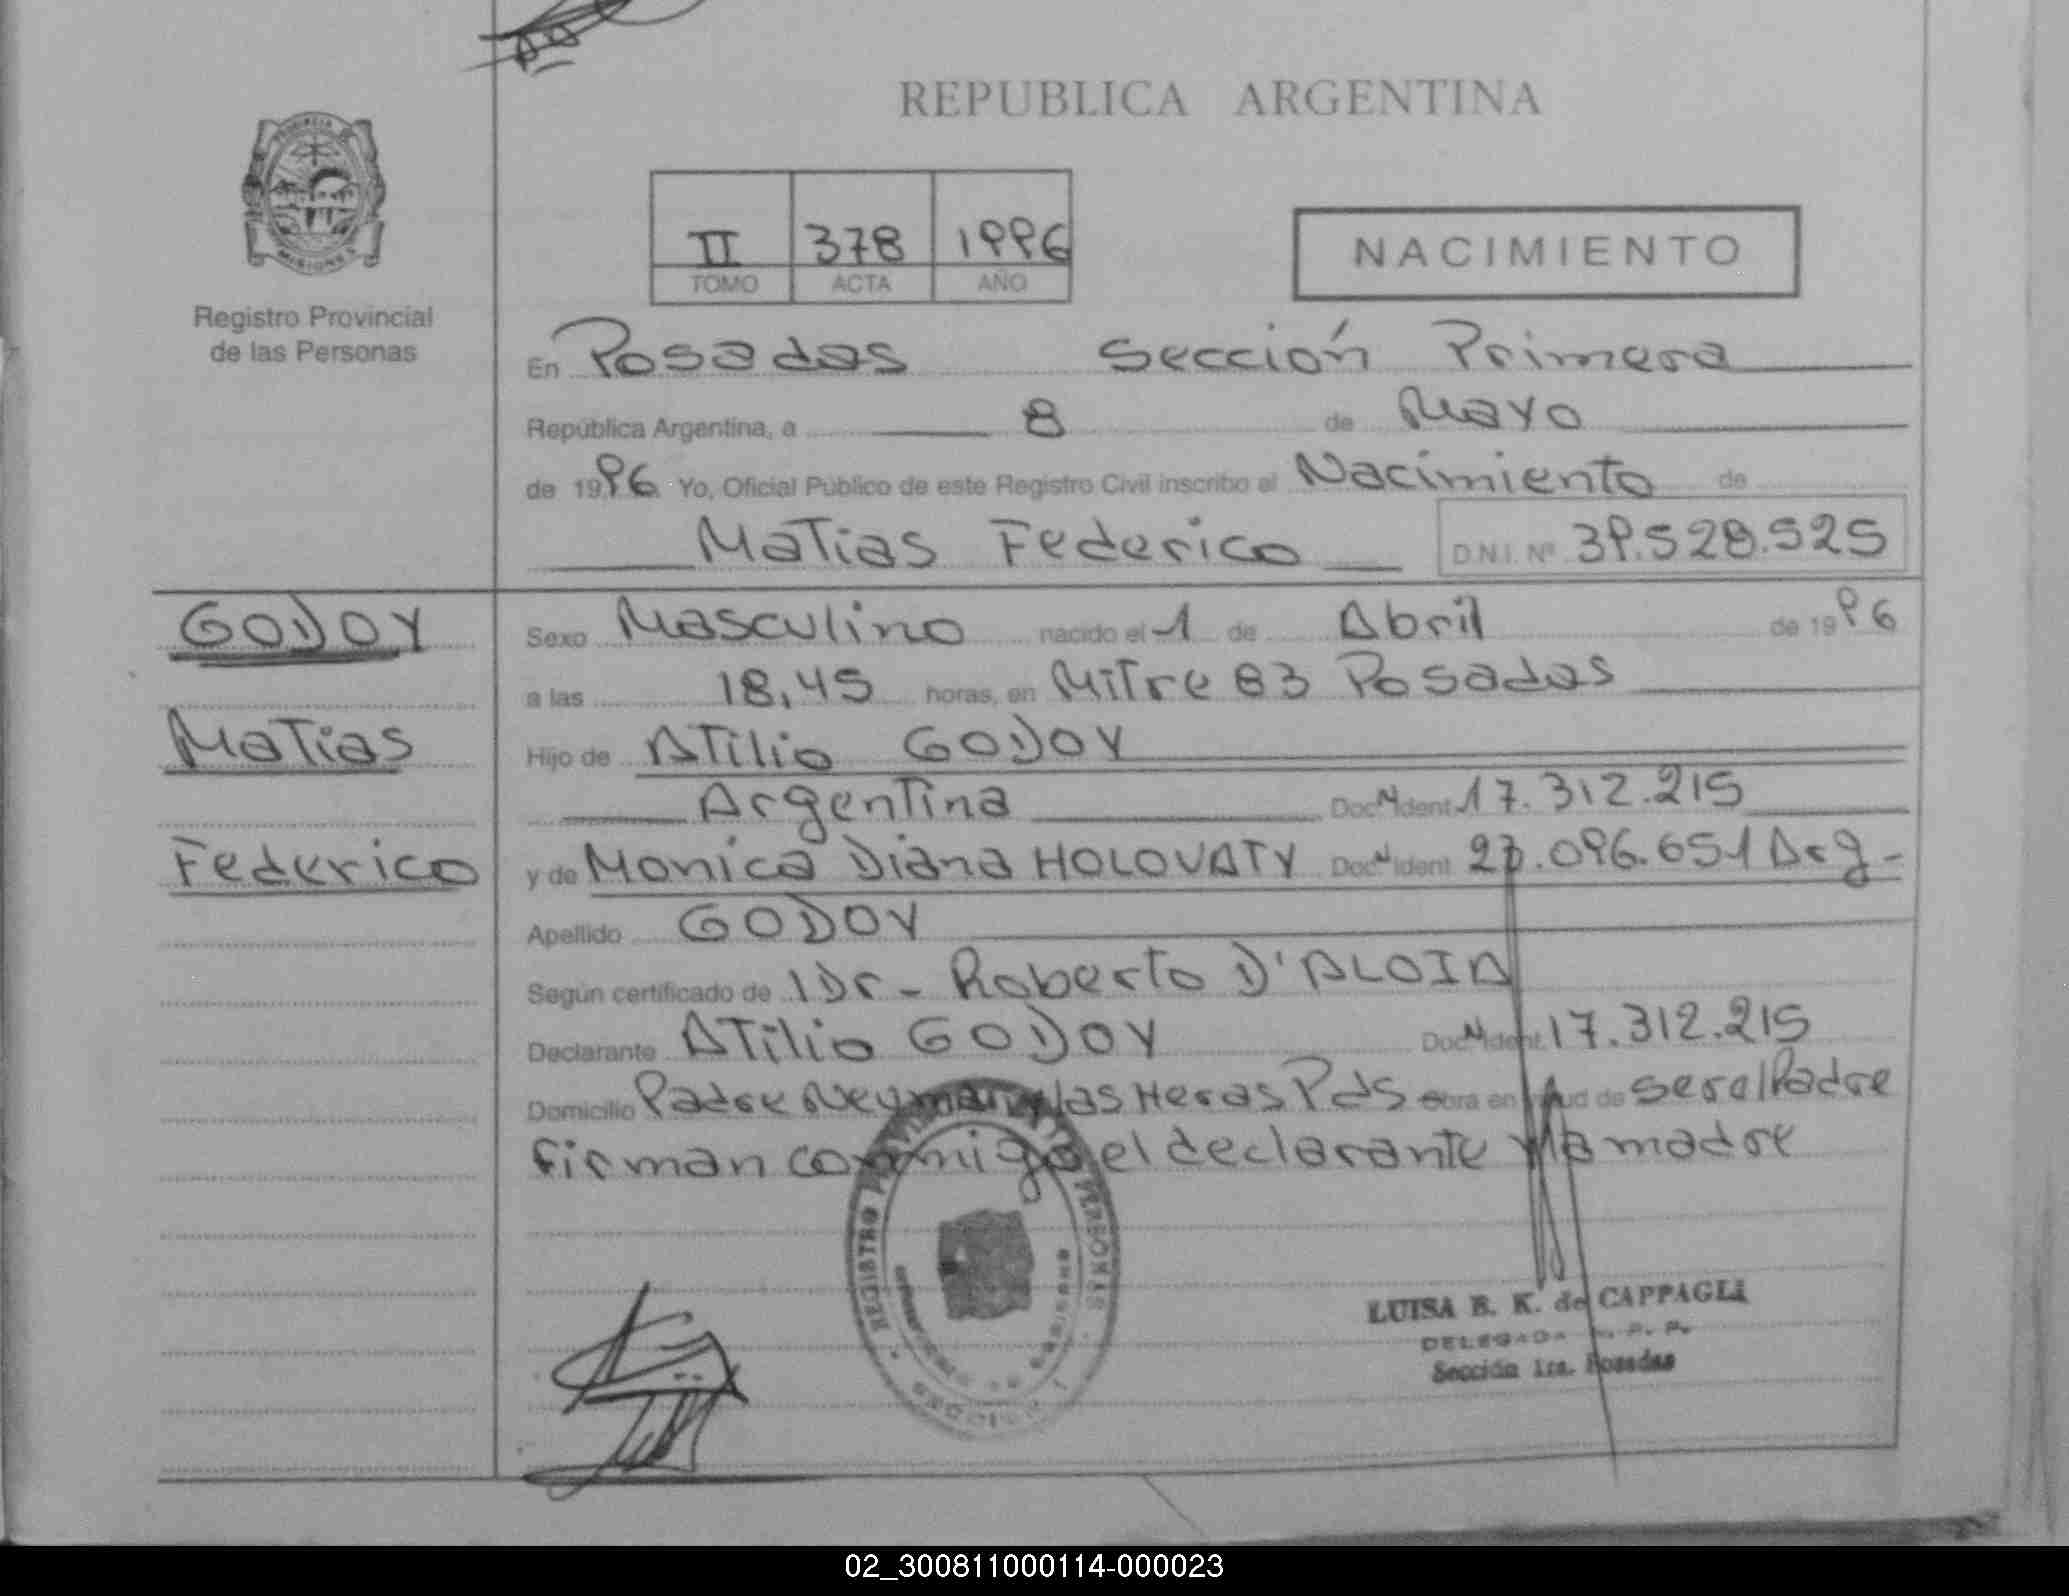 REPUBLICA ARGENTINA
PROVINCIA DE
MISIONES
Registro Provincial
de las Personas
II 378 1996
TOMO ACTA AÑO
NACIMIENTO
En Posadas Sección Primera
República Argentina, a 8 de Mayo
de 1996 Yo, Oficial Público de este Registro Civil inscribo el Nacimiento de
Matias Federico D.N.I. Nº 39.528.525
GODOY
Matias
Federico
Sexo Masculino nacido el 1 de Abril de 1996
a las 18,45 horas, en Mitre 83 Posadas
Hijo de Atilio GODOY
Argentina Doc N Ident 17.312.215
y de Monica Diana HOLOVATY Doc N Ident .096.651 Arg-
Apellido GODOY
Según certificado de 1Dr- Roberto D'ALOIA
Declarante Atilio GODOY Doc N Ident. 17.312.215
Domicilio Padre Neyman y las Heras Pds obra en virtud de ser el Padre
firman conmigo el declarante y la madre
REGISTRO PROVINCIAL DE LAS PERSONAS
MISIONES
LUISA B. K. de CAPPAGLI
DELEGADA R. P. P.
Sección 1ra. Posadas
02_300811000114-000023